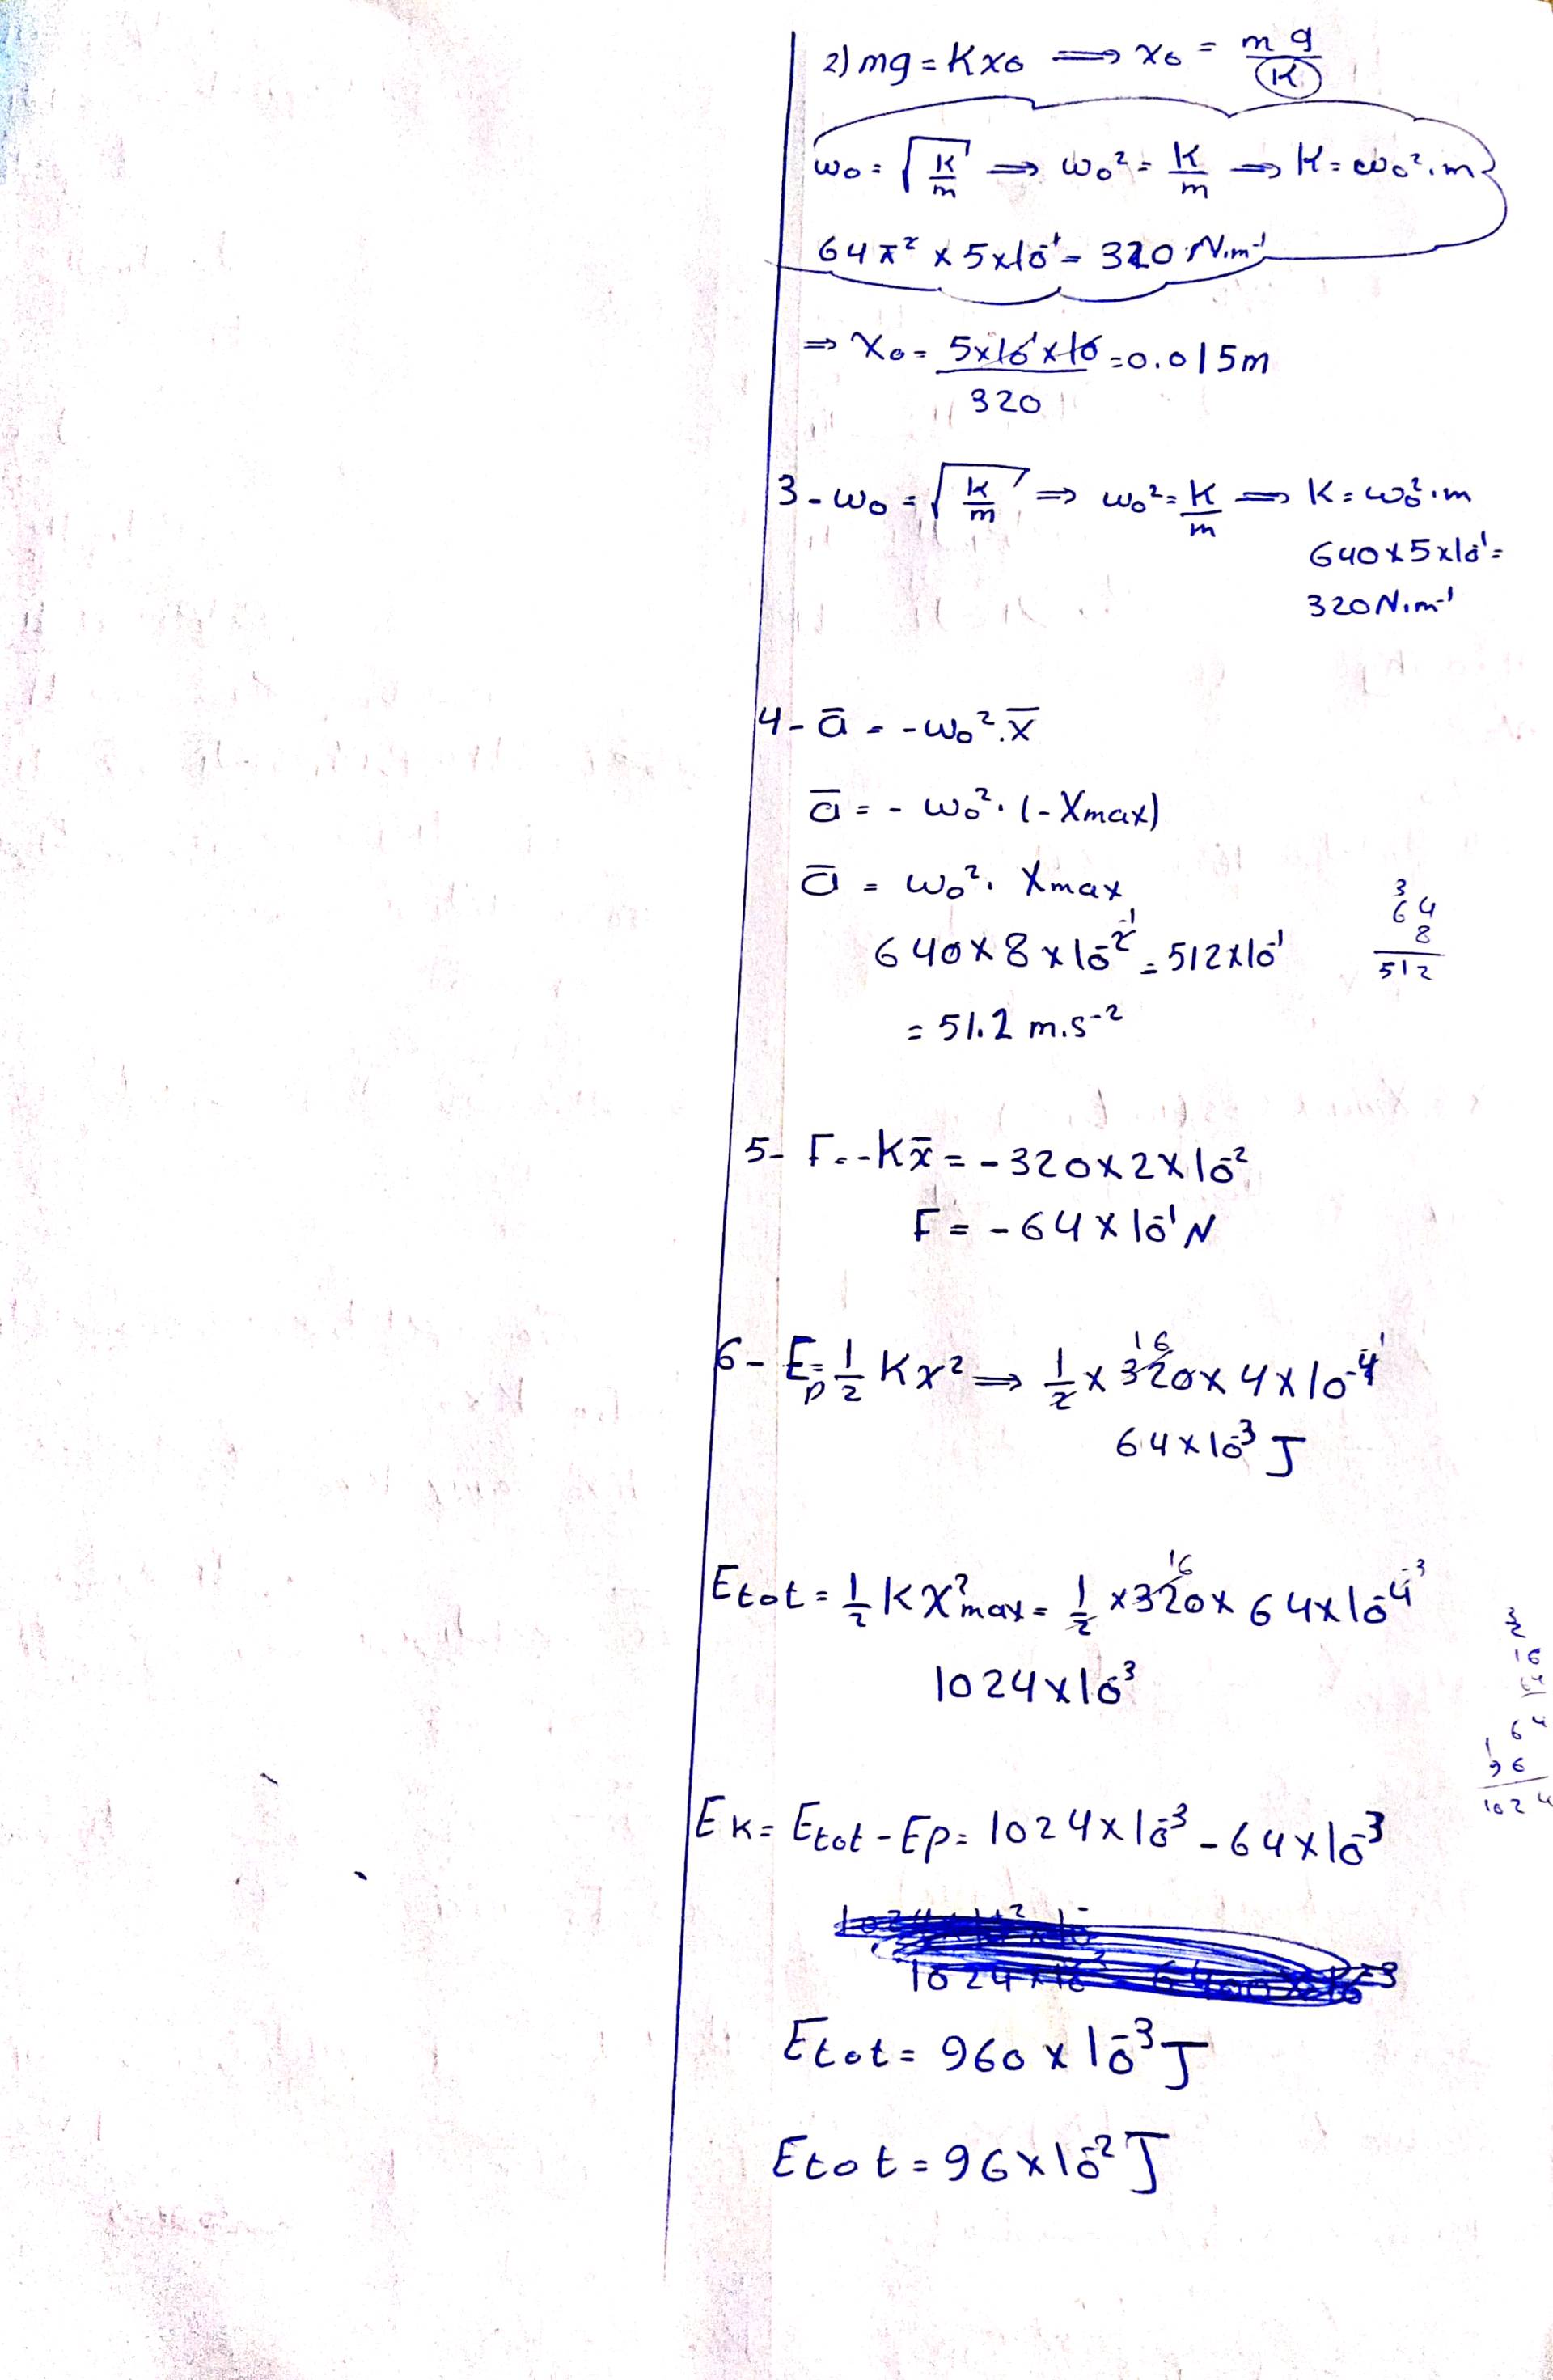 2) mg = Kx₀ ⟹ x₀ = mg/K
ω₀ = √(K/m) ⟹ ω₀² = K/m ⟹ K = ω₀².m
64π² × 5×10⁻¹ = 320 N.m⁻¹
⟹ X₀ = 5×10⁻¹×10/320 = 0.015m
3 - ω₀ = √(K/m) ⟹ ω₀² = K/m ⟹ K = ω₀².m
640 × 5×10⁻¹ =
320 N.m⁻¹
4 - a̅ = -ω₀².x̅
a̅ = - ω₀².(-Xmax)
a̅ = ω₀². Xmax
3
64
8
512
640 × 8 × 10⁻² ⁻¹ = 512×10⁻¹
= 51.2 m.s⁻²
5 - F = -Kx̅ = - 320 × 2 × 10⁻²
F = - 64 × 10⁻¹ N
6 - Ep = 1/2 Kx² ⟹ 1/2 × 320 × 4 × 10⁻⁴
16
64 × 10⁻³ J
Etot = 1/2 KX²max = 1/2 × 320 × 64×10⁻⁴ ⁻³
16
1024×10⁻³
16
64
64
96
1024
EK = Etot - Ep = 1024×10⁻³ - 64×10⁻³
Etot = 960 × 10⁻³ J
Etot = 96×10⁻² J